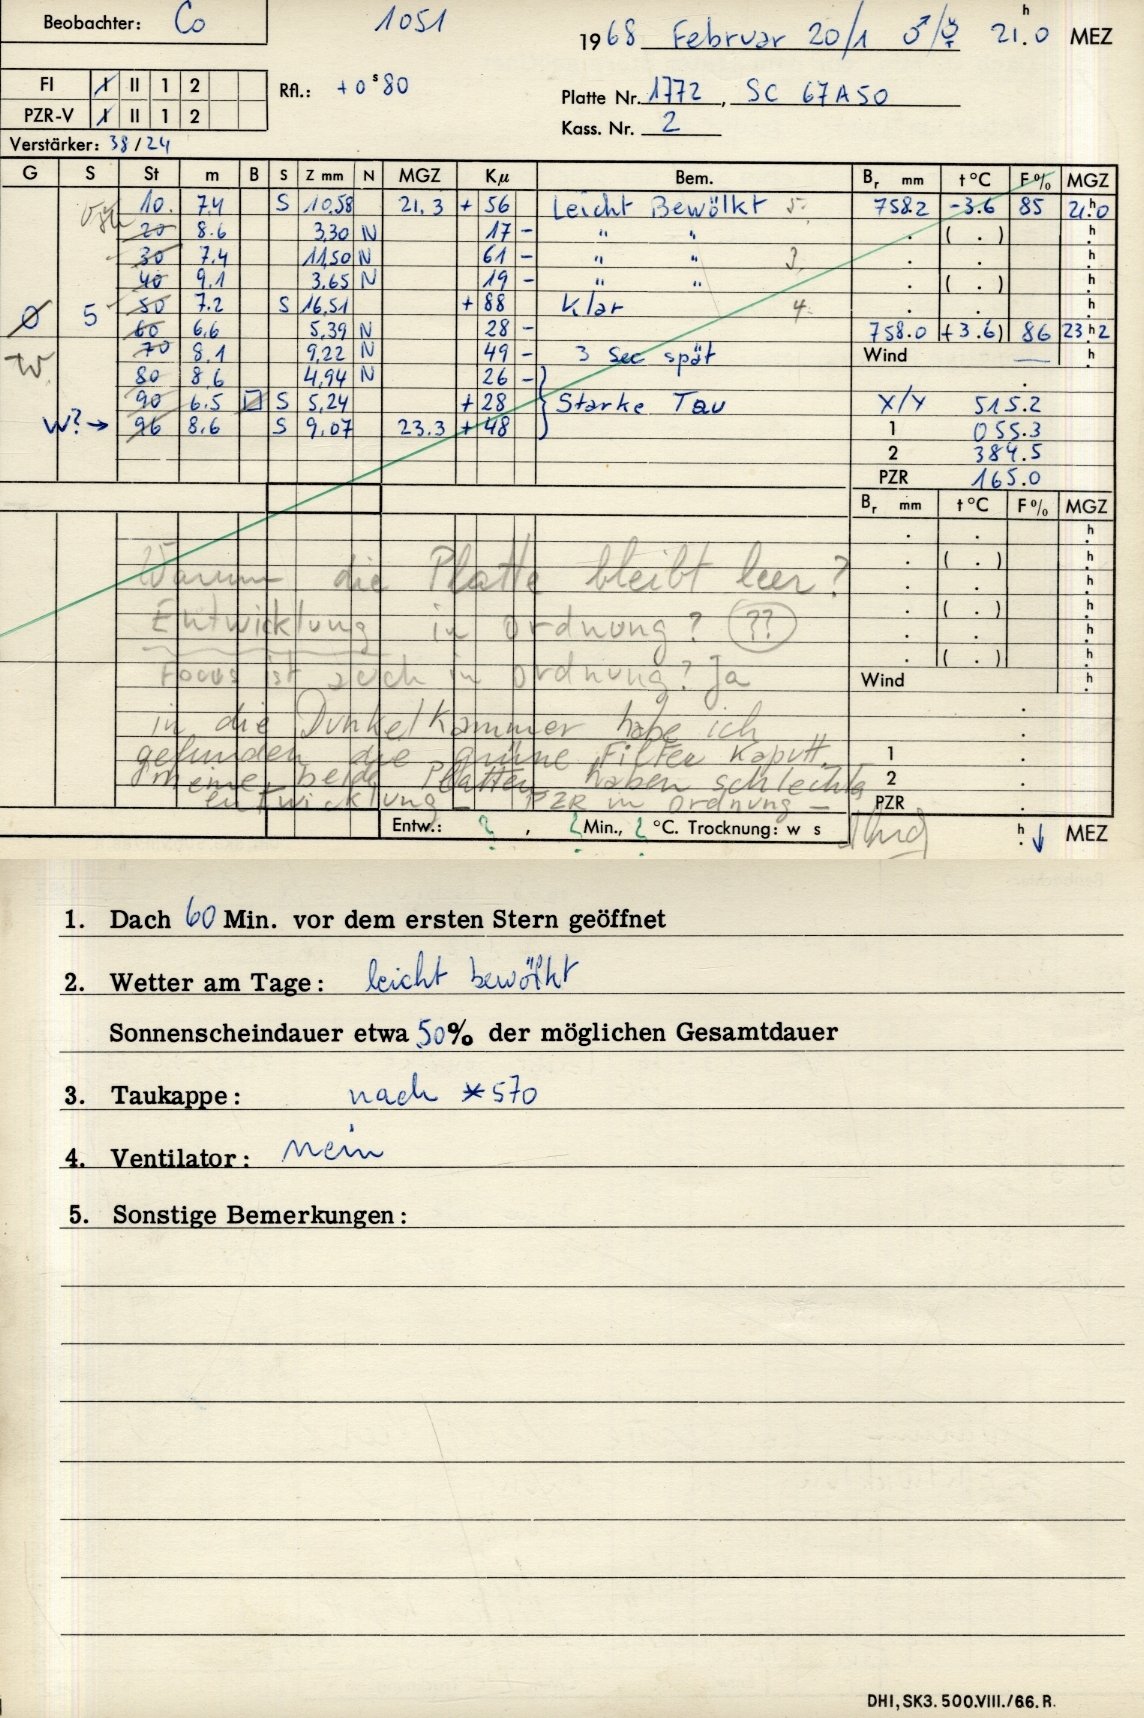 Beobachter: Co 1051 1968 Februar 20/1 ♂/☿ 21.h0 MEZ
FI I II 1 2 Rfl.: +0s80 Platte Nr. 1772, SC 67A50
PZR-V I II 1 2 Kass. Nr. 2
Verstärker: 38/24
G S St m B S Z mm N MGZ Kμ Bem. Br mm t°C F% MGZ
10. 7.4 S 10,58 21,3 + 56 Leicht Bewölkt 5. 758.2 -3.6 85 21.h0
20 8.6 3,30 N 17 - " " . ( . ) h
30 7.4 11,50 N 61 - " " 3. . . h
40 9,1 3.65 N 19 - " " . ( . ) h
Ø 5 50 7.2 S 16,51 + 88 Klar 4. . . h
60 6.6 5,39 N 28 - 758.0 (+3.6) 86 23h2
W 70 8.1 9,22 N 49 - 3 Sec spät Wind — h
80 8,6 4,94 N 26 - .
90 6.5 S 5,24 +28 Starke Tau X/Y 515.2
W? → 96 8.6 S 9,07 23.3 + 48 1 055.3
2 384.5
PZR 165.0
Br mm t°C F% MGZ
Warum die Platte bleibt leer?
Entwicklung in Ordnung? (??)
Focus ist auch in Ordnung? Ja
Wind
in die Dunkelkammer habe ich
gefunden die grüne Filter Kaputt. 1
meine beide Platten haben schlechte 2
entwicklung - PZR in ordnung - PZR
Entw.: ?, ? Min., ? °C. Trocknung: w s h ↓ MEZ
1. Dach 60 Min. vor dem ersten Stern geöffnet
2. Wetter am Tage: leicht bewölkt
Sonnenscheindauer etwa 50% der möglichen Gesamtdauer
3. Taukappe: nach *570
4. Ventilator: nein
5. Sonstige Bemerkungen:
DHI, SK3. 500.VIII./66. R.